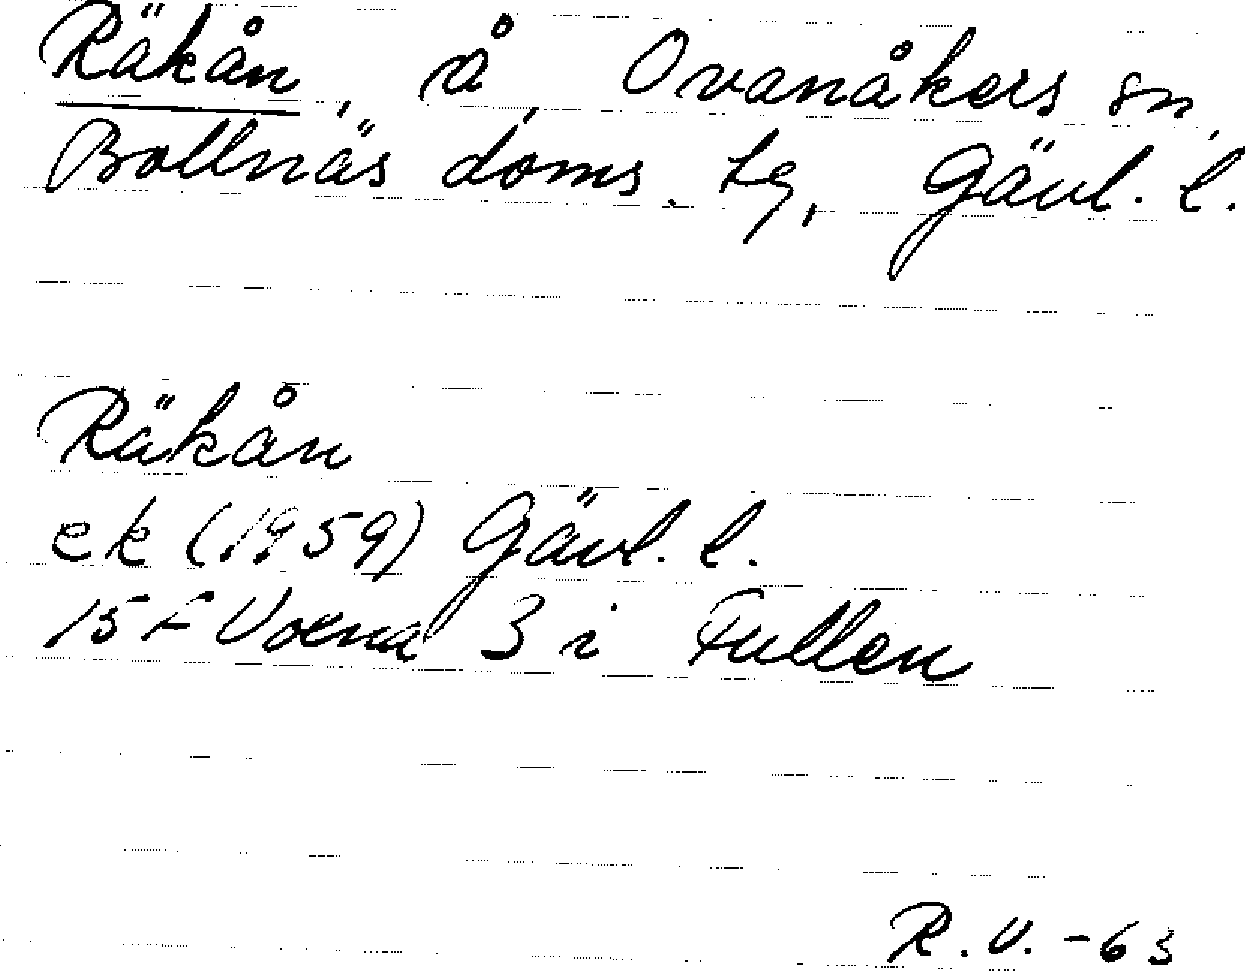 Räkån, å, Ovanåkers sn,
Bollnäs doms. tg, Gävl. l.
Räkån
ek (1959) Gävl. l.
15 F Voxna 3 i Fullen
R.V. -63